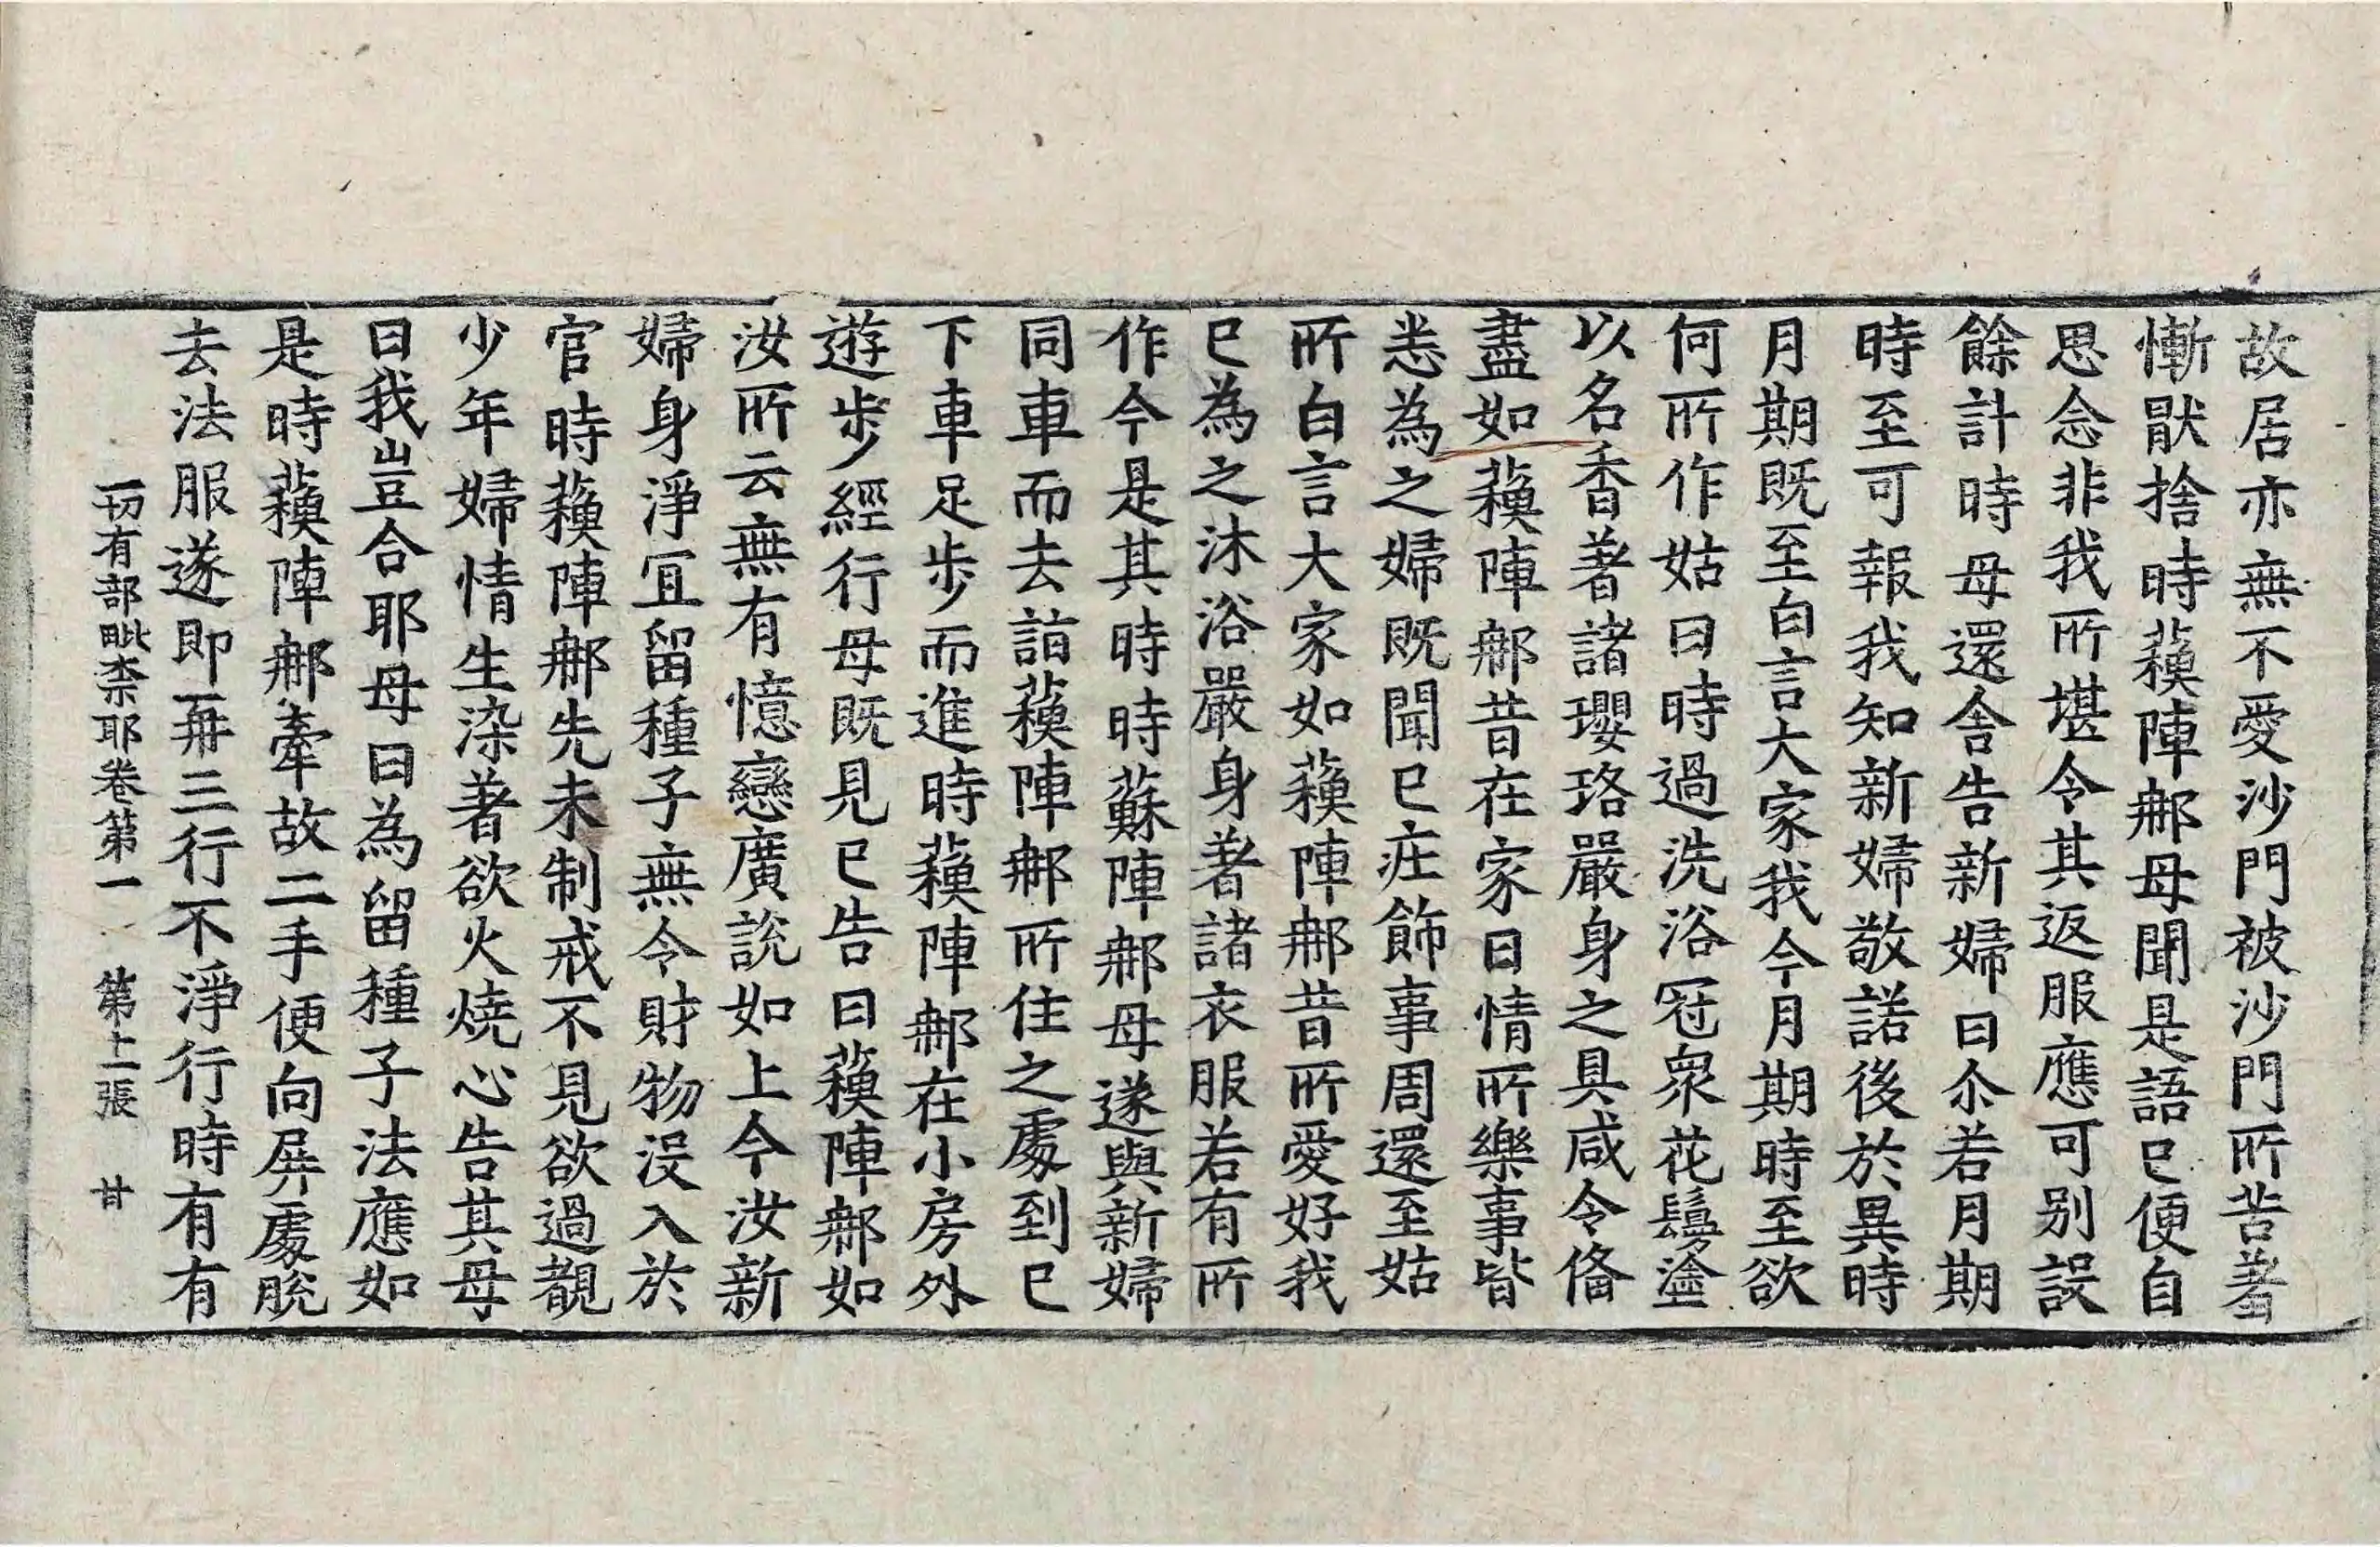 故居亦無不愛沙門被沙門所苦著
慚猒捨時蘓陣那母聞是語已便自
思念非我所堪令其返服應可別設
餘計時母還舍告新婦曰尒若月期
時至可報我知新婦敬諾後於異時
月期既至白言大家我今月期時至欲
何所作姑曰時過洗浴冠衆花鬘塗
以名香著諸瓔珞嚴身之具咸令俻
盡如蘓陣那昔在家日情所樂事皆
悉為之婦既聞已疰飾事周還至姑
所白言大家如蘓陣那昔所愛好我
已為之沐浴嚴身著諸衣服若有所
作今是其時時蘇陣那母遂與新婦
同車而去詣蘓陣那所住之處到已
下車足步而進時蘓陣那在小房外
遊步經行母既見已告曰蘓陣那如
汝所云無有憶戀廣說如上今汝新
婦身淨冝留種子無令財物沒入於
官時蘓陣那先未制戒不見欲過覩
少年婦情生染著欲火燒心告其母
曰我豈合耶母曰為留種子法應如
是時蘓陣那牽故二手便向屏處脫
去法服遂即再三行不淨行時有有
一切有部毗柰耶卷第一 第十二張 甘